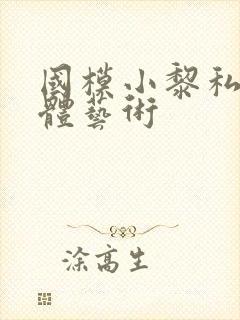 國模小黎私
體藝術
涂高生